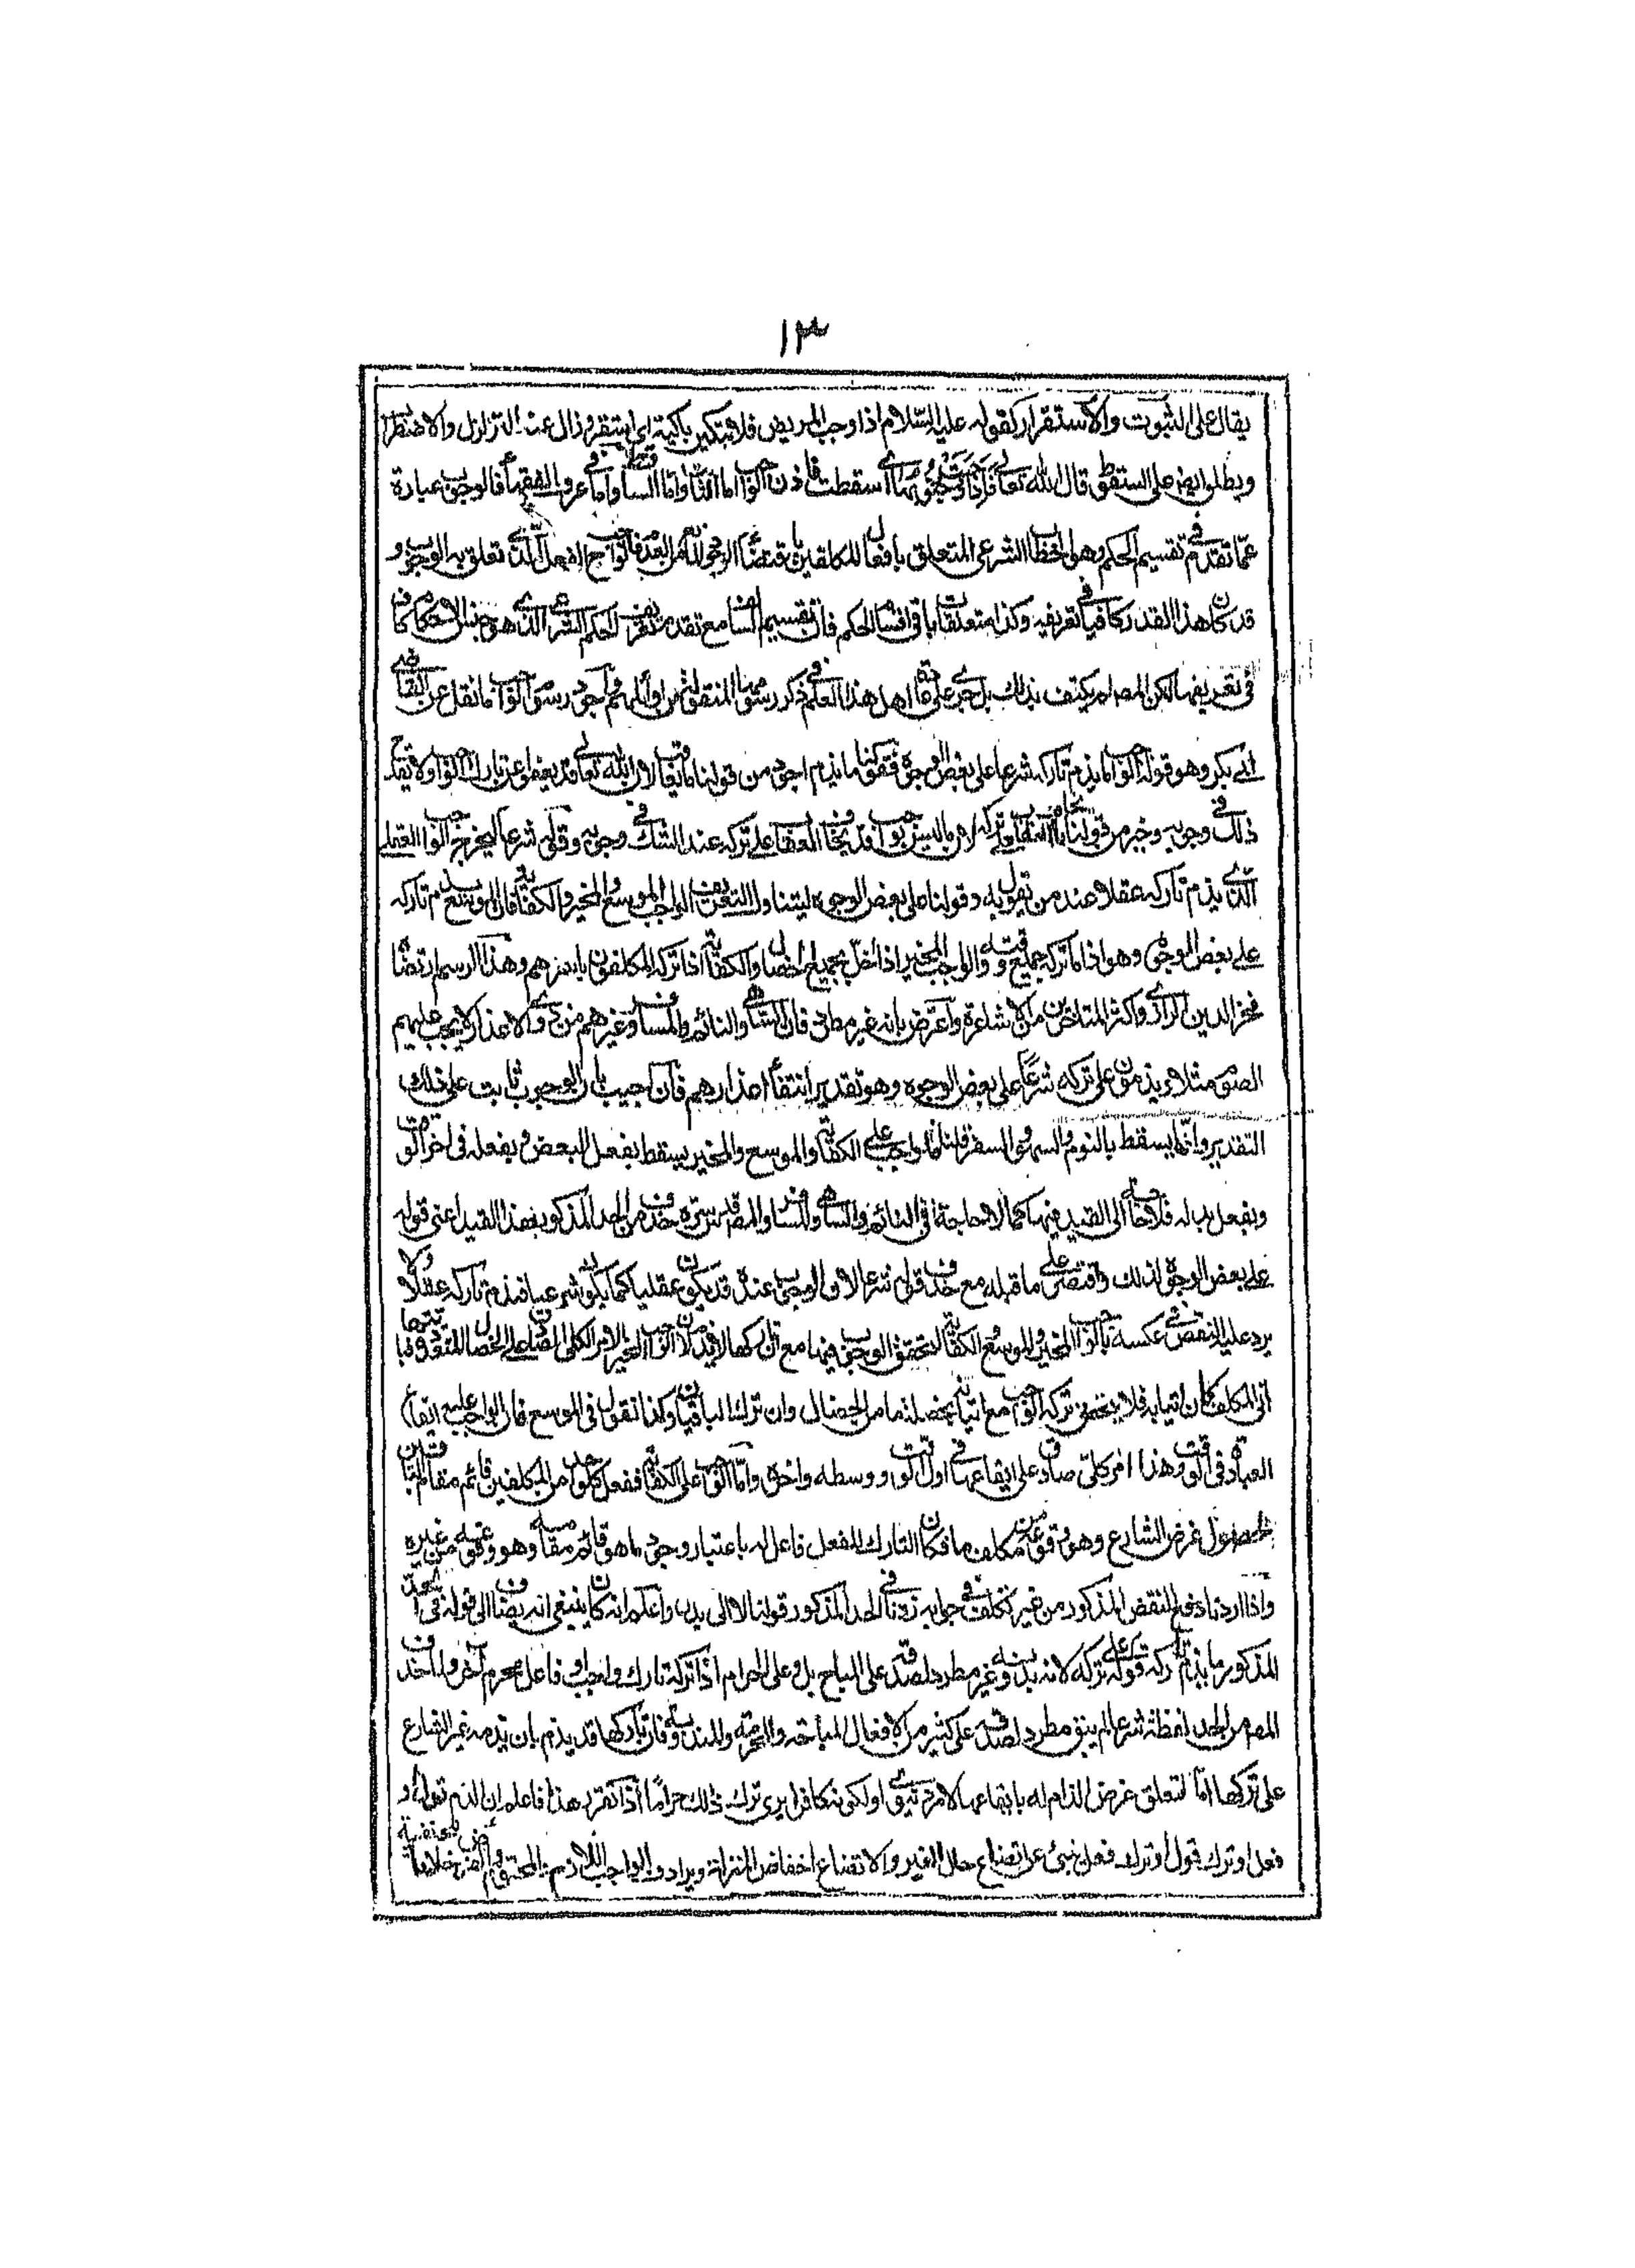 ١٣
يقال على الثبوت والاستقرار كقوله عليه السلام اذا وجب المريض فلا تبكين باكية اى استقر وزال عنه التزلزل والاضطراب
ويطلق ايضا على السقوط قال الله تعالى فاذا وجبت جنوبها اى سقطت فاذن الواجب اما الثابت واما الساقط واما فى عرف الفقهاء فالوجوب عبارة
عما تقدم فى تقسيم الحكم وهو الخطاب الشرعى المتعلق بافعال المكلفين باقتضاء الوجود المانع من العدم فالواجب الفعل الذى تعلق به الوجوب و
قد كان هذا القدر كافيا فى تعريفه وكذا متعلقات باقى اقسام الحكم فان تقسيم مع تقدم تعريف الحكم الشرعى الذى هو جنس الاحكام كاف
فى تعريفها لكن المصـ لم يكتف بذلك بل جرى على قاعدة اهل هذا العلم فى ذكر رسومها المنقولة من اوائلهم واجود رسوم الواجب ما نقل عن القاضى
ابى بكر وهو قوله الواجب ما يذم تاركه شرعا على بعض الوجوه فقولنا ما يذم اجود من قولنا ما يعاقب لان الله تعالى قد يعفو عن تارك الواجب ولا يقدح
ذلك فى وجوبه وخير من قولنا ما يخاف العقاب على تركه لان ما ليس بواجب قد يخاف العقاب على تركه عند الشك فى وجوبه وقوله شرعا ليخرج الواجب العقلى
الذى يذم تاركه عقلا عند من يقول به وقولنا على بعض الوجوه ليتناول التعريف الواجب الموسع والمخير والكفاية فان الموسع يذم تاركه
على بعض الوجوه وهو اذا ما تركه جميع وقته والواجب المخير اذا اخل بجميع الخصال والكفاية اذا تركه المكلفون باسرهم وهذا الرسم ارتضاه
فخر الدين الرازى واكثر المتاخرين من الاشاعرة واعترض بانه غير مطرد فان الساهى والنائم والمسافر وغيرهم من ذوى الاعذار لا يجب عليهم
الصوم مثلا ويذمون على تركه شرعا على بعض الوجوه وهو تقدير انتفاء اعذارهم فان اجيب بان الوجوب ثابت على ذلك
التقدير وانما يسقط بالنوم والسهو والسفر قلنا والواجب على الكفاية والموسع والمخير يسقط بفعل البعض وبفعله فى اخر الوقت
وبفعل بدله فلا حاجة الى القيد فيها كما لا حاجة فى النائم والساهى والمسافر والمصـ قدس سره حذف من الحد المذكور هذا القيد اعنى قوله
على بعض الوجوه لذلك واقتصر على ما قبله مع حذف قوله شرعا لان الوجوب عنده قد يكون عقليا كما يكون شرعيا فيذم تاركه عقلا ولا
يرد عليه النقض فى عكسه بالواجب المخير والموسع والكفاية لتحقق الوجوب فيها مع ان تركها لا الواجب المخير الامر الكلى الصادق على الخصال المتعددة
اتى المكلف كان اتيا به فلا يتحقق تركه الواجب مع اتيانه بخصلة ما من الخصال وان ترك الباقيات وكذا نقول فى الموسع فان الواجب عليه ايقاع
العبادة فى الوقت وهذا امر كلى صادق على ايقاعها فى اول الوقت ووسطه واخره واما الواجب على الكفاية ففعل كل واحد من المكلفين قائم مقام
لحصول غرض الشارع وهو وقوعه من مكلف ما فكان التارك للفعل فاعل له باعتبار وجود ما هو قائم مقامه وهو وقوعه من غيره
واذا اردنا دفع النقض المذكور من غير تكلف فى جوابه زدنا فى الحد المذكور قولنا لا الى بدل واعلم انه كان ينبغى انه يضاف الى قوله فى الحد
المذكور ما يذم تاركه قوله على تركه لانه بدونه غير مطرد لصدقه على المباح بل وعلى الحرام اذا تركه تارك واجب او فاعل محرم اخر ولما حذف
المصـ من الحد لفظة شرعا لم يبق مطردا لصدقه على كثير من الافعال المباحة والمحرمة والمندوبة فان تاركها قد يذم بان يذمه غير الشارع
على تركها اما لتعلق غرض الذام له بايقاعها لامر دنيوى او لكونه كافرا يرى ترك ذلك حراما اذا تقرر هذا فاعلم ان الذم قول او
فعل او ترك قول او ترك فعل ينبئ عن اتضاع حال الغير والاتضاع انخفاض المنزلة ويرادف الواجب اللازم والمحتوم والفرض خلافا للحنفية